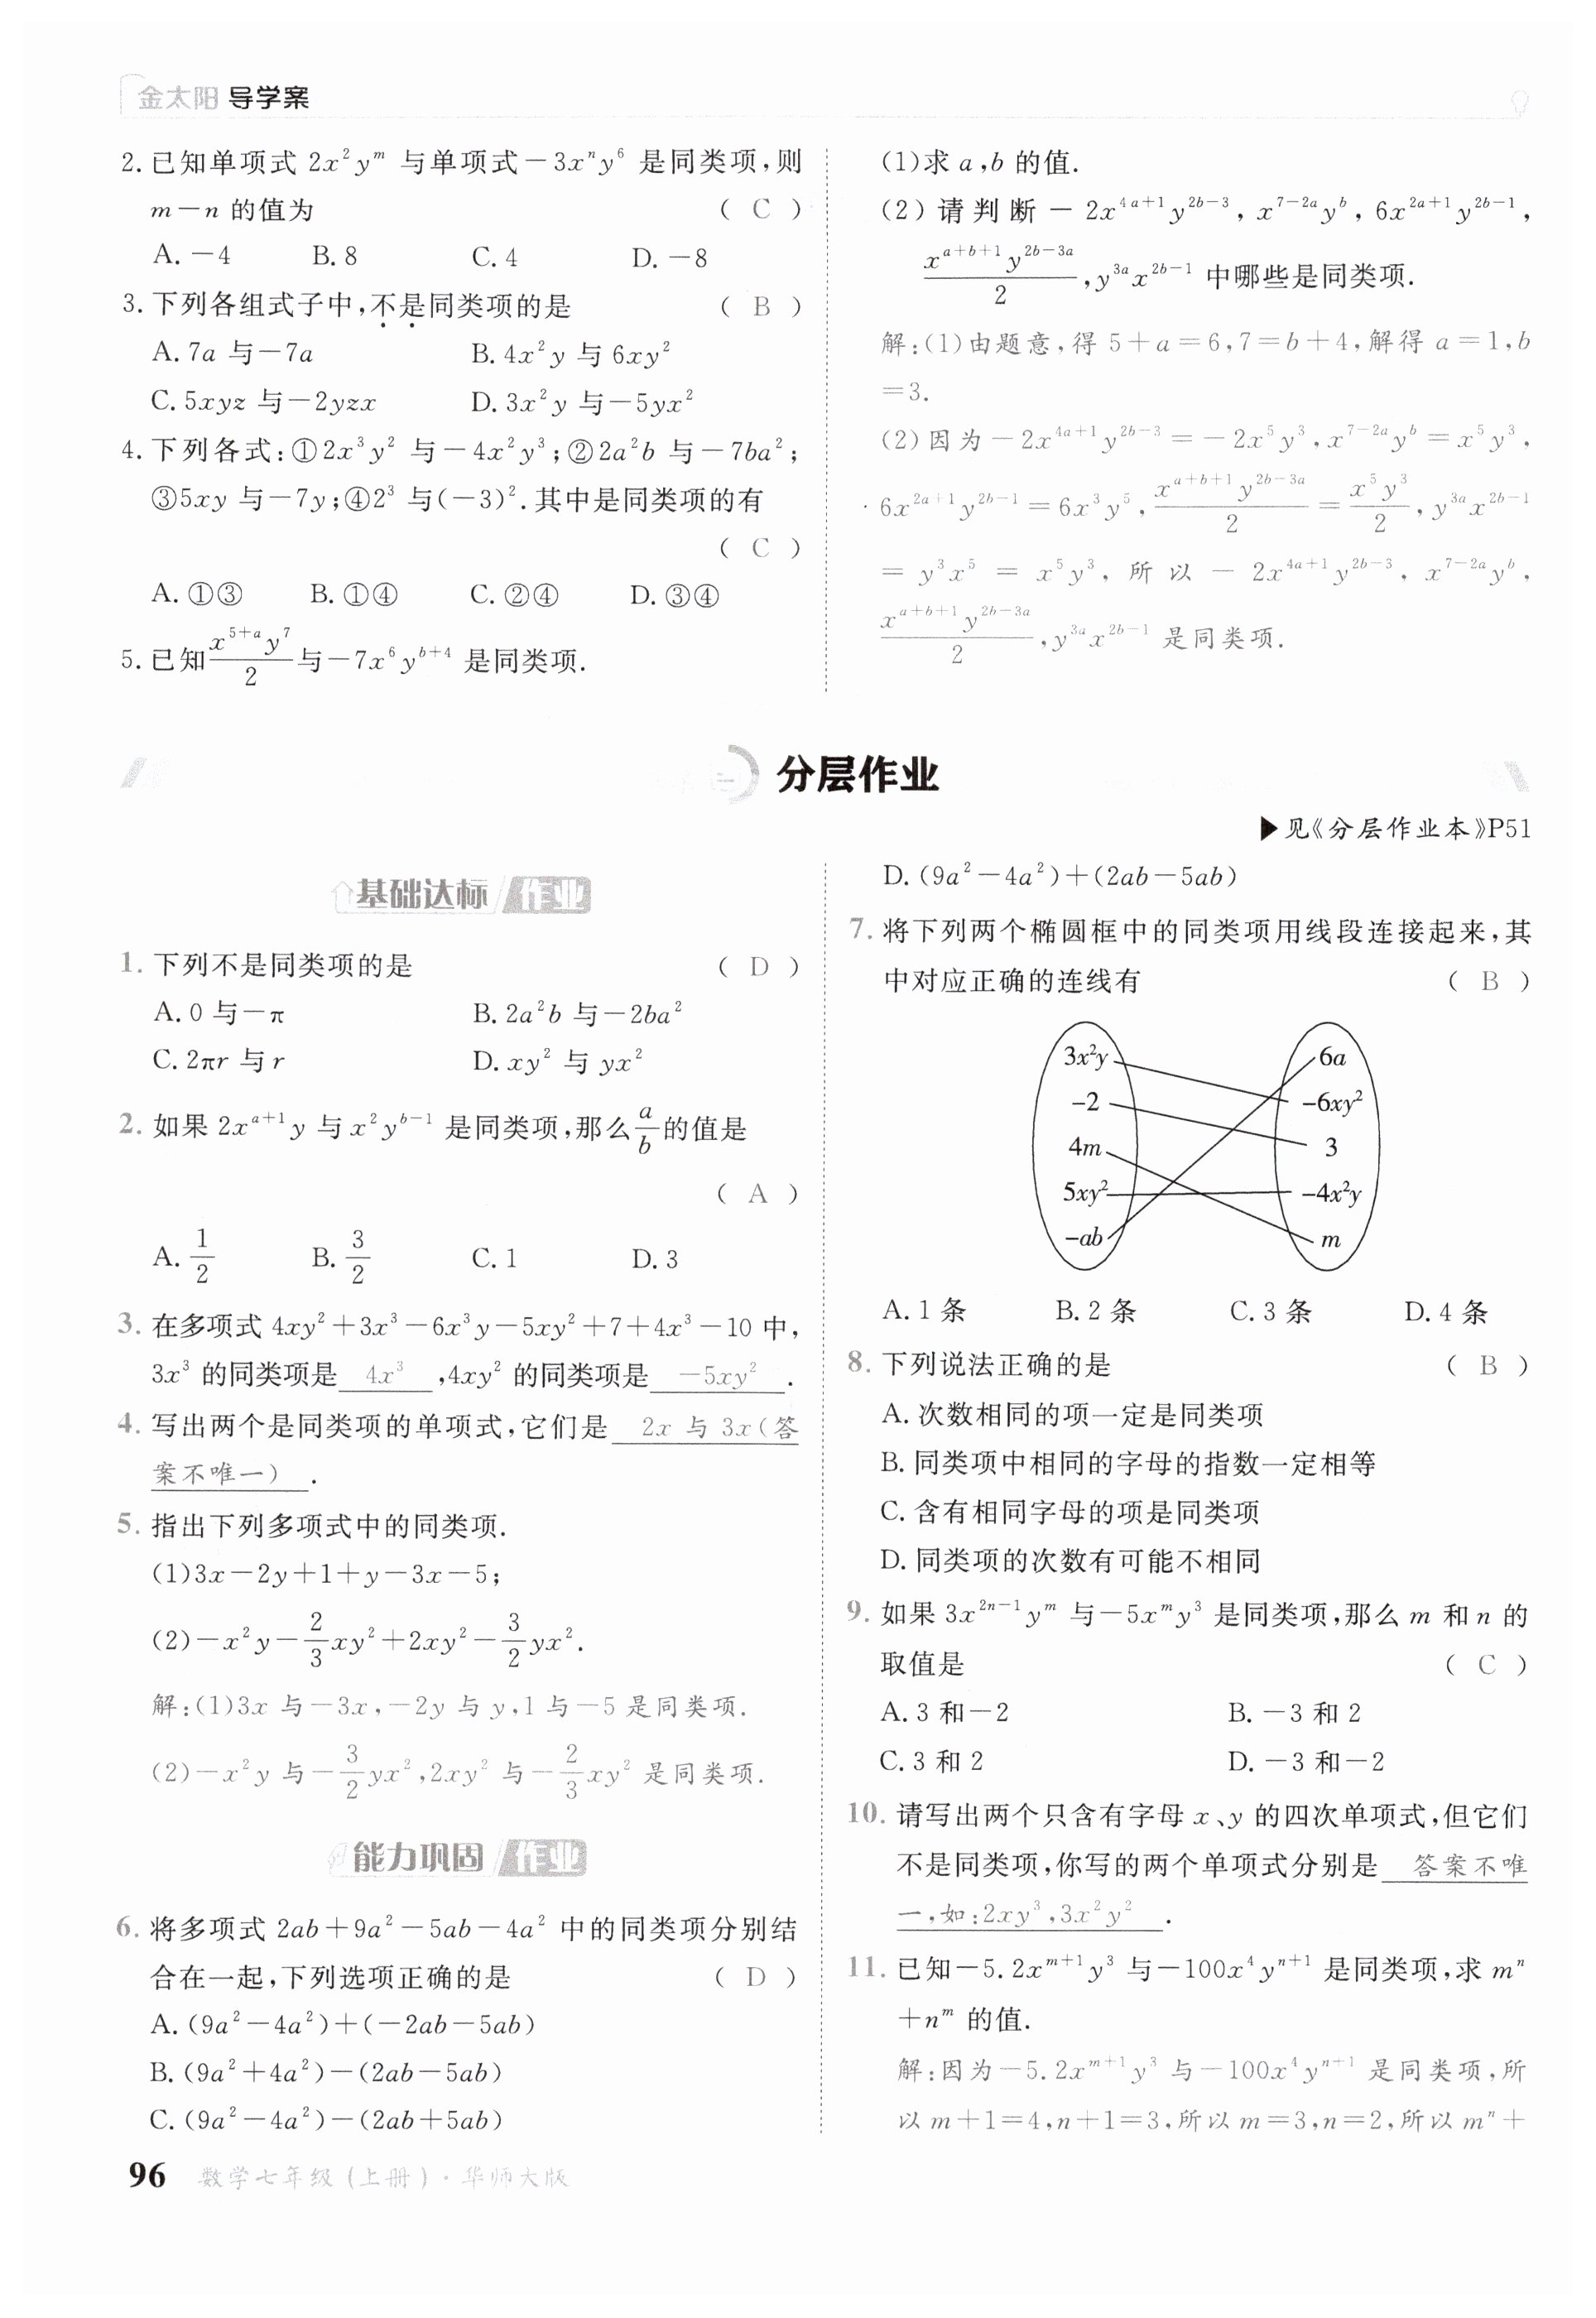 金太阳 导学案
2. 已知单项式 2x²yᵐ 与单项式－3xⁿy⁶ 是同类项,则
m－n 的值为 ( C )
A. －4 B. 8 C. 4 D. －8
3. 下列各组式子中,不是同类项的是 ( B )
A. 7a 与－7a B. 4x²y 与 6xy²
C. 5xyz 与－2yzx D. 3x²y 与－5yx²
4. 下列各式:①2x³y² 与－4x²y³;②2a²b 与－7ba²;
③5xy 与－7y;④2³ 与(－3)². 其中是同类项的有
( C )
A. ①③ B. ①④ C. ②④ D. ③④
5. 已知 x^{5+a}y⁷/2 与－7x⁶y^{b+4} 是同类项.
(1)求 a,b 的值.
(2)请判断－2x^{4a+1}y^{2b－3}, x^{7－2a}y^{b}, 6x^{2a+1}y^{2b－1},
x^{a+b+1}y^{2b－3a}/2, y^{3a}x^{2b－1} 中哪些是同类项.
解:(1)由题意,得 5+a=6,7=b+4,解得 a=1,b
=3.
(2)因为－2x^{4a+1}y^{2b－3}=－2x⁵y³, x^{7－2a}y^{b}=x⁵y³,
6x^{2a+1}y^{2b－1}=6x³y⁵, x^{a+b+1}y^{2b－3a}/2=x⁵y³/2, y^{3a}x^{2b－1}
=y³x⁵=x⁵y³,所以－2x^{4a+1}y^{2b－3}, x^{7－2a}y^{b},
x^{a+b+1}y^{2b－3a}/2, y^{3a}x^{2b－1} 是同类项.
分层作业
▶见《分层作业本》P51
基础达标 作业
1. 下列不是同类项的是 ( D )
A. 0 与－π B. 2a²b 与－2ba²
C. 2πr 与 r D. xy² 与 yx²
2. 如果 2x^{a+1}y 与 x²y^{b－1} 是同类项,那么 a/b 的值是
( A )
A. 1/2 B. 3/2 C. 1 D. 3
3. 在多项式 4xy²+3x³－6x³y－5xy²+7+4x³－10 中,
3x³ 的同类项是 4x³ ,4xy² 的同类项是 －5xy² .
4. 写出两个是同类项的单项式,它们是 2x 与 3x(答
案不唯一) .
5. 指出下列多项式中的同类项.
(1)3x－2y+1+y－3x－5;
(2)－x²y－2/3xy²+2xy²－3/2yx².
解:(1)3x 与－3x,－2y 与 y,1 与－5 是同类项.
(2)－x²y 与－3/2yx²,2xy² 与－2/3xy² 是同类项.
能力巩固 作业
6. 将多项式 2ab+9a²－5ab－4a² 中的同类项分别结
合在一起,下列选项正确的是 ( D )
A. (9a²－4a²)+(－2ab－5ab)
B. (9a²+4a²)－(2ab－5ab)
C. (9a²－4a²)－(2ab+5ab)
D. (9a²－4a²)+(2ab－5ab)
7. 将下列两个椭圆框中的同类项用线段连接起来,其
中对应正确的连线有 ( B )
3x²y 6a
－2 －6xy²
4m 3
5xy² －4x²y
－ab m
A. 1 条 B. 2 条 C. 3 条 D. 4 条
8. 下列说法正确的是 ( B )
A. 次数相同的项一定是同类项
B. 同类项中相同的字母的指数一定相等
C. 含有相同字母的项是同类项
D. 同类项的次数有可能不相同
9. 如果 3x^{2n－1}yᵐ 与－5xᵐy³ 是同类项,那么 m 和 n 的
取值是 ( C )
A. 3 和－2 B. －3 和 2
C. 3 和 2 D. －3 和－2
10. 请写出两个只含有字母 x、y 的四次单项式,但它们
不是同类项,你写的两个单项式分别是 答案不唯
一,如:2xy³,3x²y² .
11. 已知－5.2x^{m+1}y³ 与－100x⁴y^{n+1} 是同类项,求 mⁿ
+nᵐ 的值.
解:因为－5.2x^{m+1}y³ 与－100x⁴y^{n+1} 是同类项,所
以 m+1=4,n+1=3,所以 m=3,n=2,所以 mⁿ+
96 数学七年级(上册)·华师大版